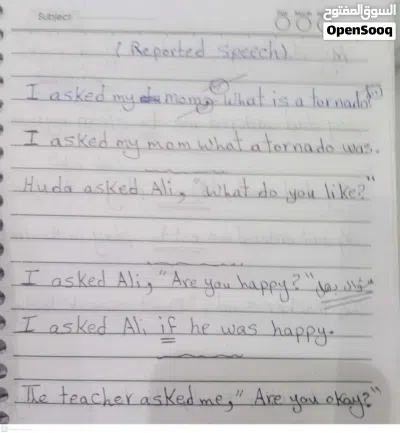 السوق المفتوح
OpenSooq
Subject
(Reported Speech)
I asked my mom, "What is a tornado?"
I asked my mom what a tornado was.
Huda asked Ali, "What do you like?"
I asked Ali, "Are you happy?" سؤال
I asked Ali if he was happy.
The teacher asked me, "Are you okay?"